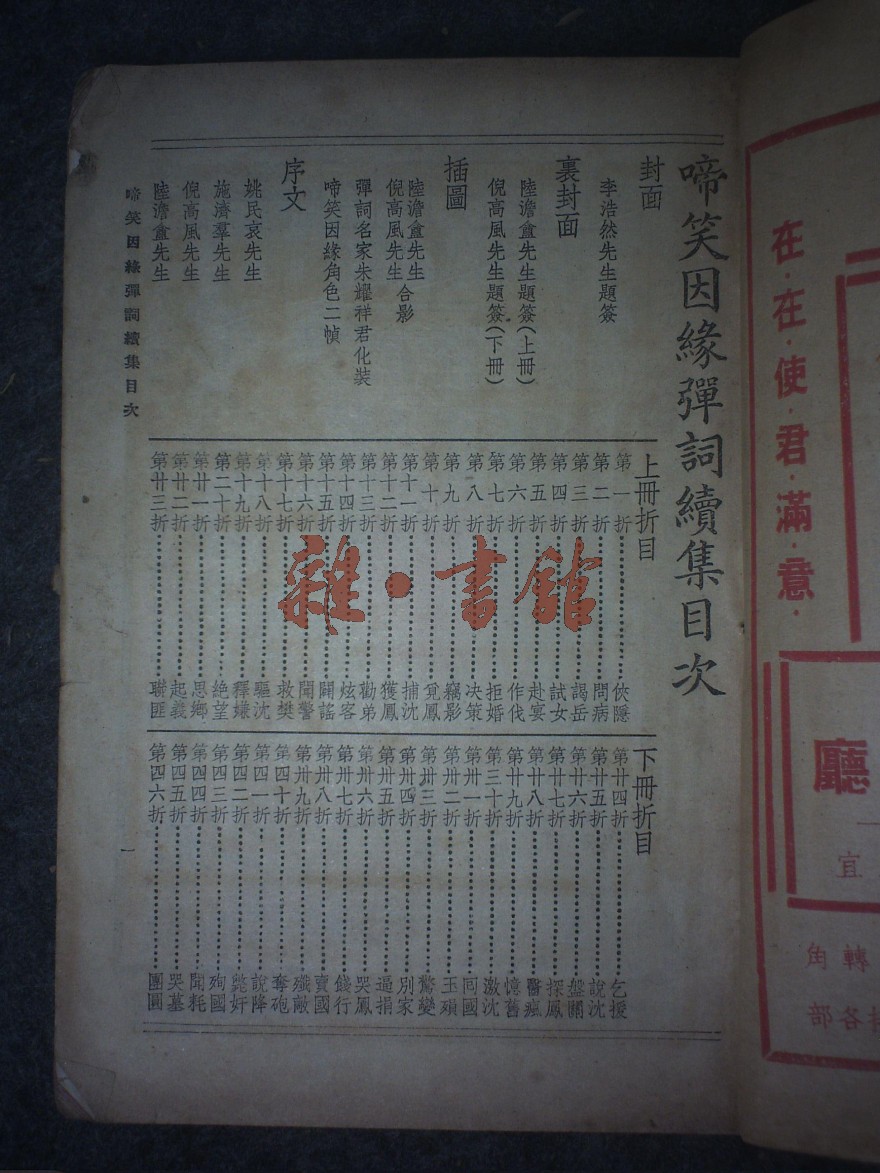 啼笑因緣彈詞續集目次
封面
李浩然先生題簽
裏封面
陸澹盦先生題簽(上冊)
倪高風先生題簽(下冊)
插圖
陸澹盦先生
倪高風先生合影
彈詞名家朱耀祥君化裝
啼笑因緣角色二幀
序文
姚民哀先生
施濟羣先生
倪高風先生
陸澹盦先生
上冊折目
第一折……俠隱
第二折……問病
第三折……謁岳
第四折……試女
第五折……赴宴
第六折……作伐
第七折……拒婚
第八折……决策
第九折……竊影
第十折……覓鳳
第十一折……捕沈
第十二折……獲鳳
第十三折……勸弟
第十四折……炫客
第十五折……闢謠
第十六折……聞警
第十七折……救樊
第十八折……驅沈
第十九折……釋嫌
第二十折……絕望
第廿一折……思鄉
第廿二折……起義
第廿三折……聯匪
下冊折目
第廿四折……乞援
第廿五折……說沈
第廿六折……盤關
第廿七折……探鳳
第廿八折……醫瘋
第廿九折……憶舊
第三十折……激沈
第卅一折……囘國
第卅二折……玉殞
第卅三折……驚變
第卅四折……別家
第卅五折……逼捐
第卅六折……哭鳳
第卅七折……餞行
第卅八折……賣國
第卅九折……殲敵
第四十折……奪砲
第四一折……說降
第四二折……斃奸
第四三折……殉國
第四四折……聞耗
第四五折……哭墓
第四六折……團圓
啼笑因緣彈詞續集目次
一
雜·書館
在·在·使·君·滿·意·
廳
宜
轉角
各部